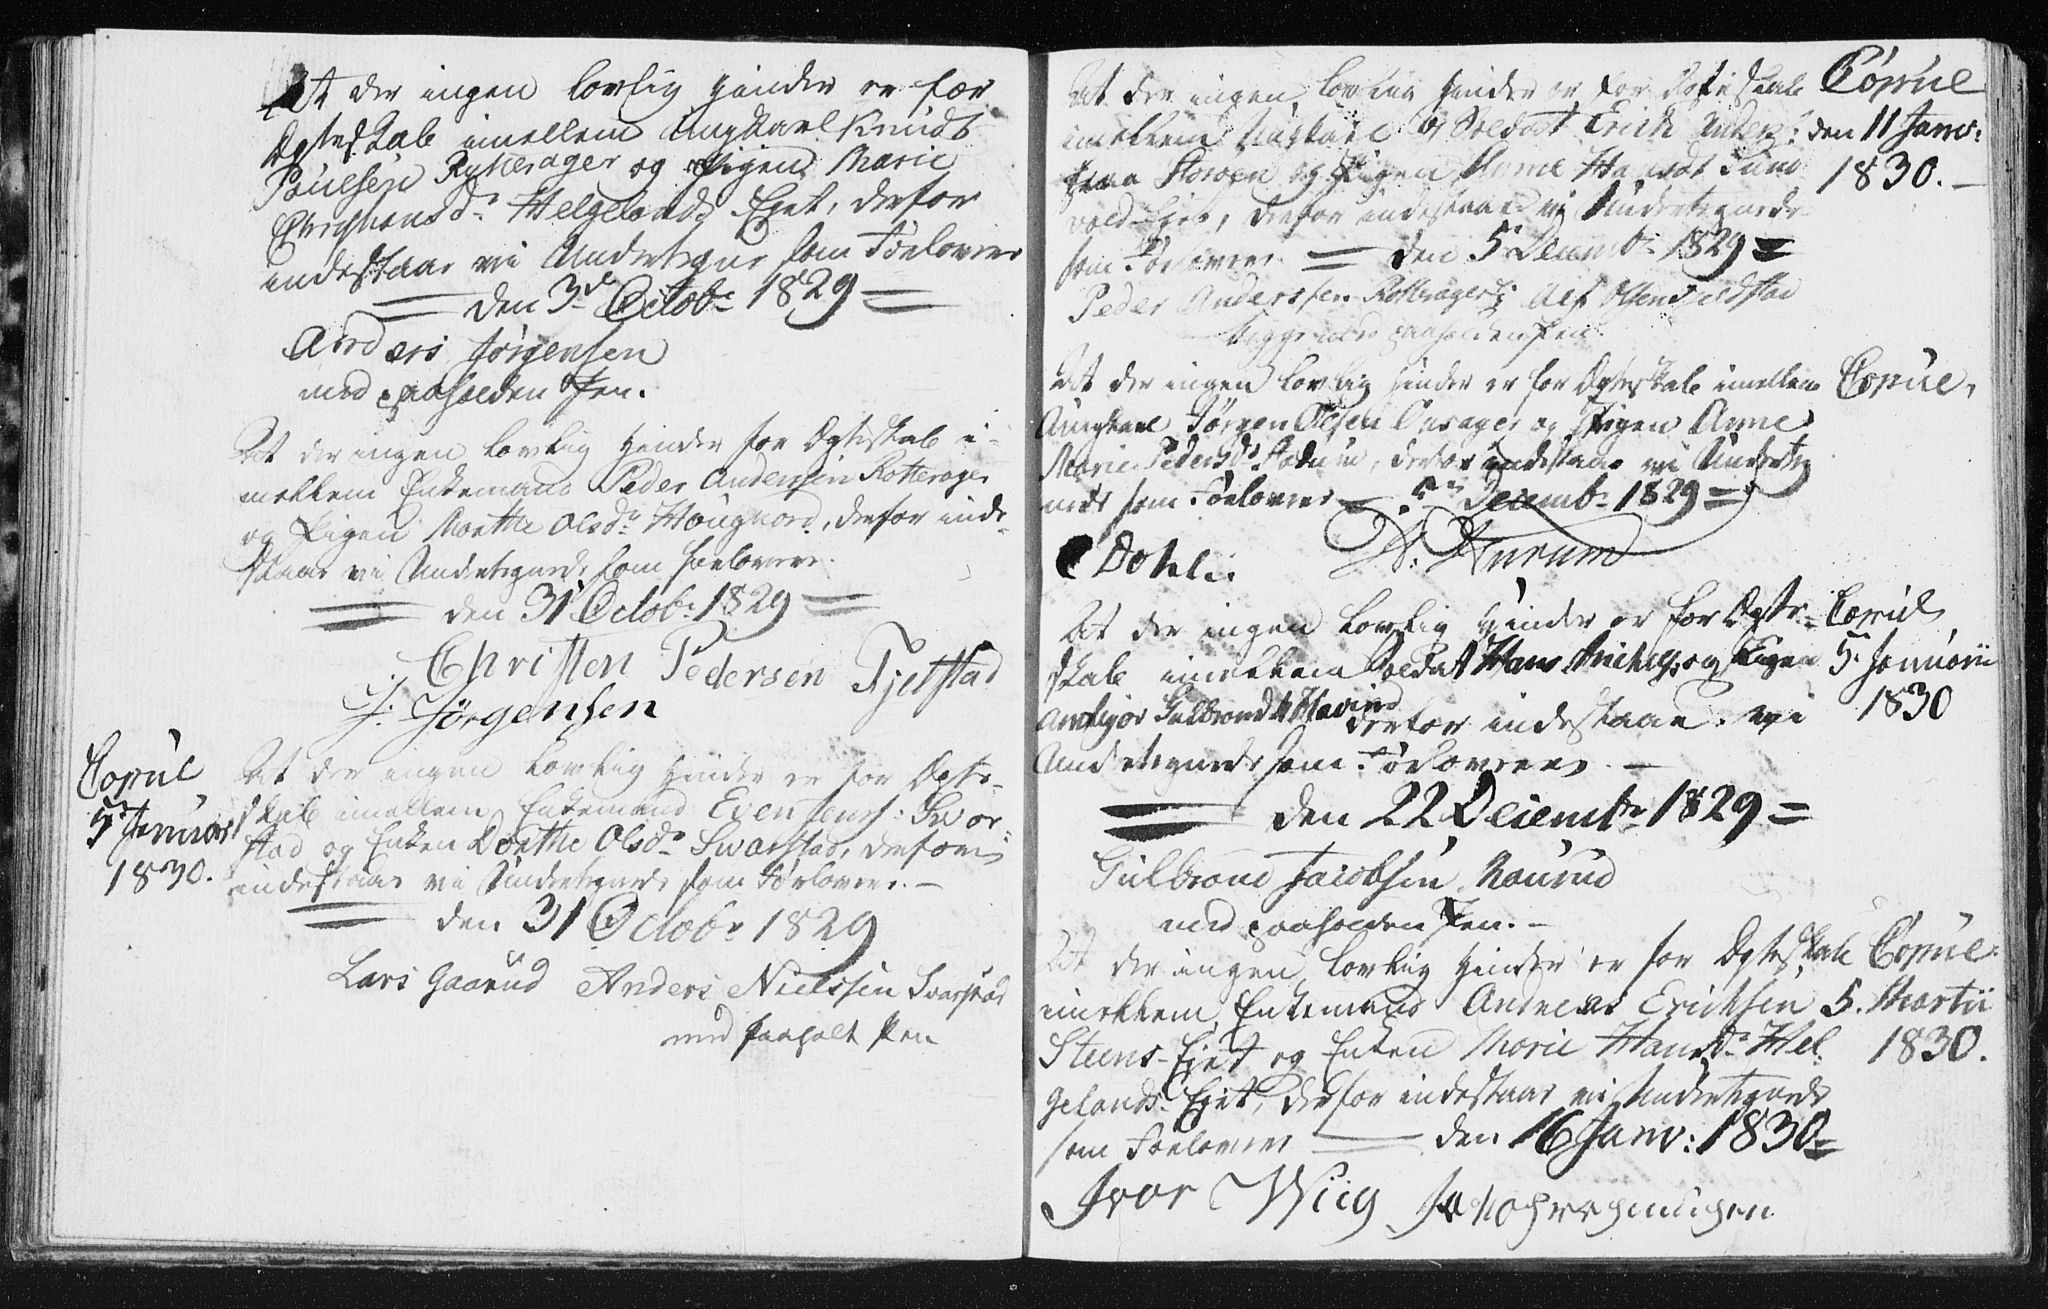 At der ingen lovlig Hinder er for
Ægteskab imellem Ungkarl Knud
Poulsen Rytterager og Pigen Marie
Christiansdr Helgelands Ejet, derfor
indestaar vi Undertegnede som Forlovere
den 3de Octobr 1829
Anders Jørgensen
med paaholden Pen.
At der ingen lovlig Hinder for Ægteskab i-
mellem Enkemand Peder Andersen Rotterager
og Pigen Marthe Olsdr Hougnord, derfor inde-
staar vi Undertegnede som Forlovere.
den 31 Octobr 1829
Christen Pedersen Fjelstad
J: Jørgensen
Copul
5 Januar
1830.
At der ingen lovlig Hinder er for Ægte-
skab imellem Enkemand Even Jens: Svar-
stad og Enken Dorthe Olsdr Svarstad, derfor
indestaar vi Undertegnede som Forlovere.
den 31 Octobr 1829
Lars Gaarud Anders Nielssen Svarstad
med paaholt Pen
At der ingen lovlig Hinder er for Ægteskab
imellem Ungkarl og Soldat Erich Anders:
og Pigen Anne Hansdr
vold Ejet, derfor indestaar vi Undertegnede
som Forlovere den 5 Decembr 1829
Peder Anderssen Rotterager Alf Olsen
begge med paaholden Pen.
Copul
den 11 Janv:
1830.
At der ingen lovlig Hinder er for Ægteskab imellem
Ungkarl Jørgen Olsen og Pigen Anne
Marie Pedersdr derfor indestaar vi Underteg
nede som Forlovere Decembr 1829
Dohli. Hurum
Copul,
At der ingen lovlig Hinder er for Ægte-
skab imellem Soldat Hans Michels: og Pigen
Gulbrand derfor indestaar vi
Undertegnede som Forlovere.
den 22 Decembr 1829
Gulbrand Jacobsen Rourud
med paaholden Pen.
Copul
5. Januarii
1830
At der ingen lovlig Hinder er for Ægteskab
imellem Enkemand Andreas Erichsen
Steens-Ejet og Enken Marie Hansdr Hel
gelands Ejet, derfor indestaar vi Undertegnede
som Forlovere den 16 Janv: 1830
Ivar Wiig
Copul:
5. Martii
1830.